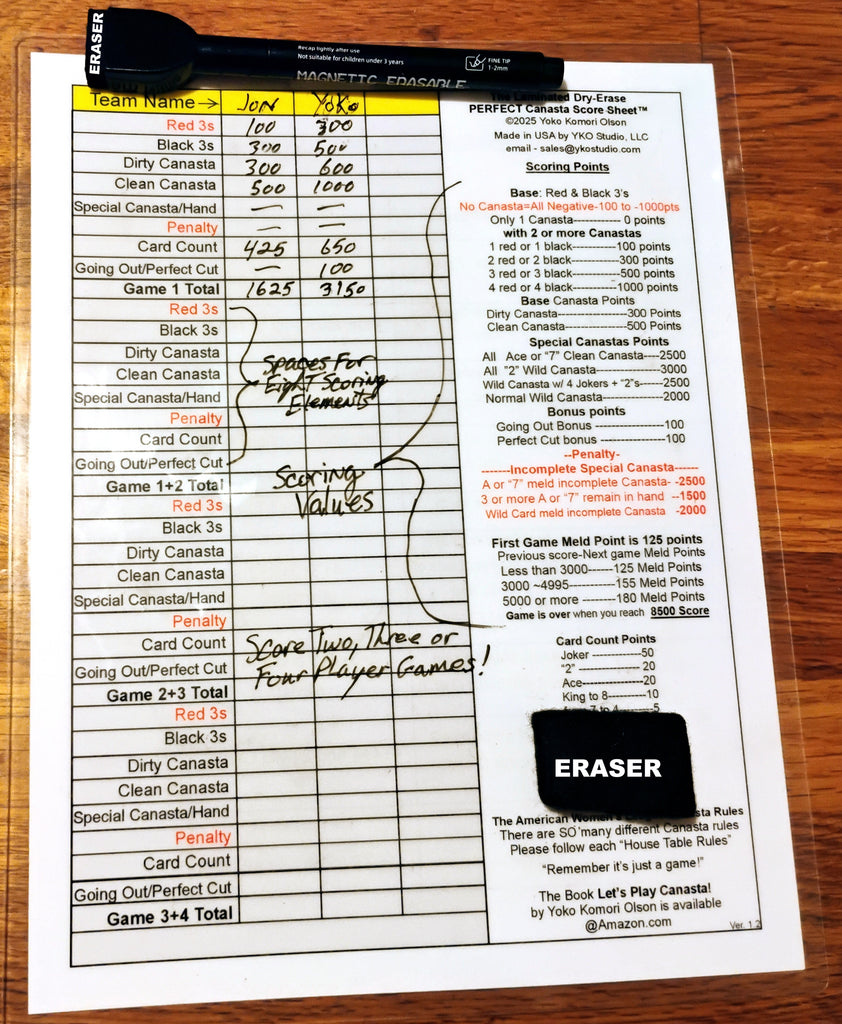 ERASER
Recap tightly after use
Not suitable for children under 3 years
FINE TIP
1-2mm
MAGNETIC ERASABLE
Team Name → Jon Yoko
Red 3s 100 300
Black 3s 300 500
Dirty Canasta 300 600
Clean Canasta 500 1000
Special Canasta/Hand — —
Penalty — —
Card Count 425 650
Going Out/Perfect Cut — 100
Game 1 Total 1625 3150
Red 3s
Black 3s
Dirty Canasta
Clean Canasta
Special Canasta/Hand
Penalty
Card Count
Going Out/Perfect Cut
Game 1+2 Total
Spaces For
Eight Scoring
Elements
Scoring
Values
Red 3s
Black 3s
Dirty Canasta
Clean Canasta
Special Canasta/Hand
Penalty
Card Count
Going Out/Perfect Cut
Game 2+3 Total
Score Two, Three or
Four Player Games!
Red 3s
Black 3s
Dirty Canasta
Clean Canasta
Special Canasta/Hand
Penalty
Card Count
Going Out/Perfect Cut
Game 3+4 Total
The Laminated Dry-Erase
PERFECT Canasta Score Sheet™
©2025 Yoko Komori Olson
Made in USA by YKO Studio, LLC
email - sales@ykostudio.com
Scoring Points
Base: Red & Black 3's
No Canasta=All Negative-100 to -1000pts
Only 1 Canasta----------- 0 points
with 2 or more Canastas
1 red or 1 black---------100 points
2 red or 2 black---------300 points
3 red or 3 black---------500 points
4 red or 4 black--------1000 points
Base Canasta Points
Dirty Canasta-----------------300 Points
Clean Canasta----------------500 Points
Special Canastas Points
All Ace or "7" Clean Canasta----2500
All "2" Wild Canasta--------------3000
Wild Canasta w/ 4 Jokers + "2"s------2500
Normal Wild Canasta--------------2000
Bonus points
Going Out Bonus ---------------100
Perfect Cut bonus --------------100
--Penalty-
-------Incomplete Special Canasta------
A or "7" meld incomplete Canasta- -2500
3 or more A or "7" remain in hand --1500
Wild Card meld incomplete Canasta -2000
First Game Meld Point is 125 points
Previous score-Next game Meld Points
Less than 3000------125 Meld Points
3000 ~4995----------155 Meld Points
5000 or more -------180 Meld Points
Game is over when you reach 8500 Score
Card Count Points
Joker --------------50
"2" ---------------- 20
Ace---------------- 20
King to 8----------10
7 to 4 5
ERASER
The American Women's Canasta Rules
There are SO many different Canasta rules
Please follow each "House Table Rules"
"Remember it's just a game!"
The Book Let's Play Canasta!
by Yoko Komori Olson is available
@Amazon.com
Ver. 1.2